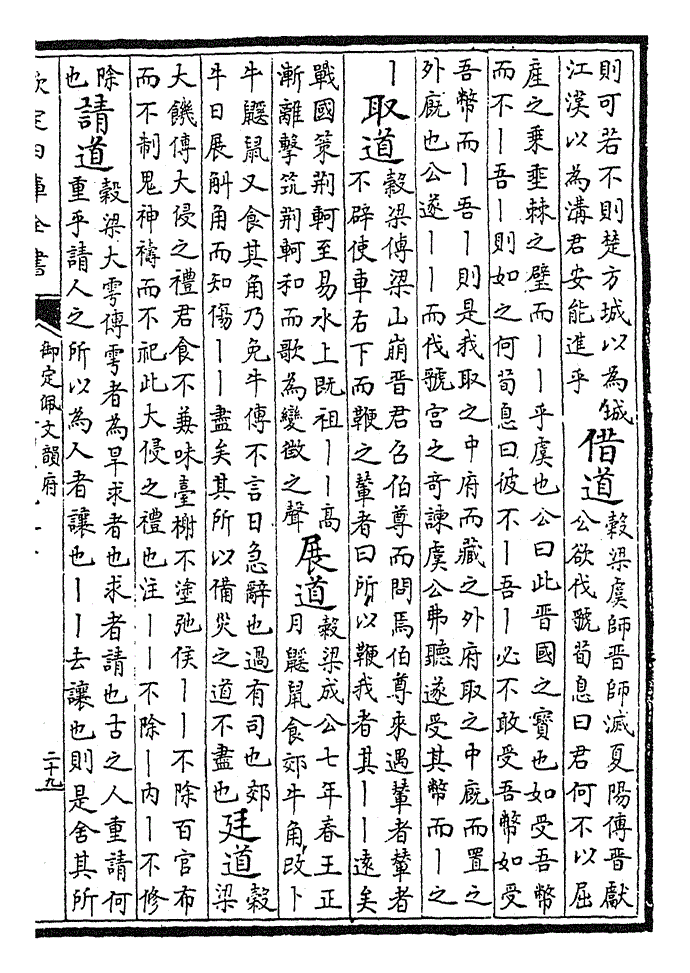 則可若不則楚方城以為城
江漢以為溝君安能進乎
借道
穀梁虞師晉師滅夏陽傳晉獻
公欲伐虢荀息曰君何不以屈
產之乗垂棘之璧而丨丨乎虞也公曰此晉國之寶也如受吾幣
而不丨吾丨則如之何荀息曰彼不丨吾丨必不敢受吾幣如受
吾幣而丨吾丨則是我取之中府而藏之外府取之中廐而置之
外廐也公遂丨丨而伐虢宮之奇諫虞公弗聽遂受其幣而丨之
丨
取道
穀梁傳梁山崩晉君召伯尊而問焉伯尊來遇輦者輦者
不辟使車右下而鞭之輦者曰所以鞭我者其丨丨逺矣
戰國策荆軻至易水上既祖丨丨髙
漸離擊筑荆軻和而歌為變徴之聲
展道
穀梁成公七年春王正
月鼷鼠食郊牛角改卜
牛鼷鼠又食其角乃免牛傳不言日急辭也過有司也郊
牛日展斛角而知傷丨丨盡矣其所以備災之道不盡也
廷道
穀
梁
大饑傳大侵之禮君食不兼味臺榭不塗弛侯丨丨不除百官布
而不制鬼神禱而不祀此大侵之禮也注丨丨不除丨内丨不修
除
也
請道
穀梁大雩傳雩者為旱求者也求者請也古之人重請何
重乎請人之所以為人者讓也丨丨去讓也則是舍其所
欽定四庫全書
御定佩文韻府
二十九